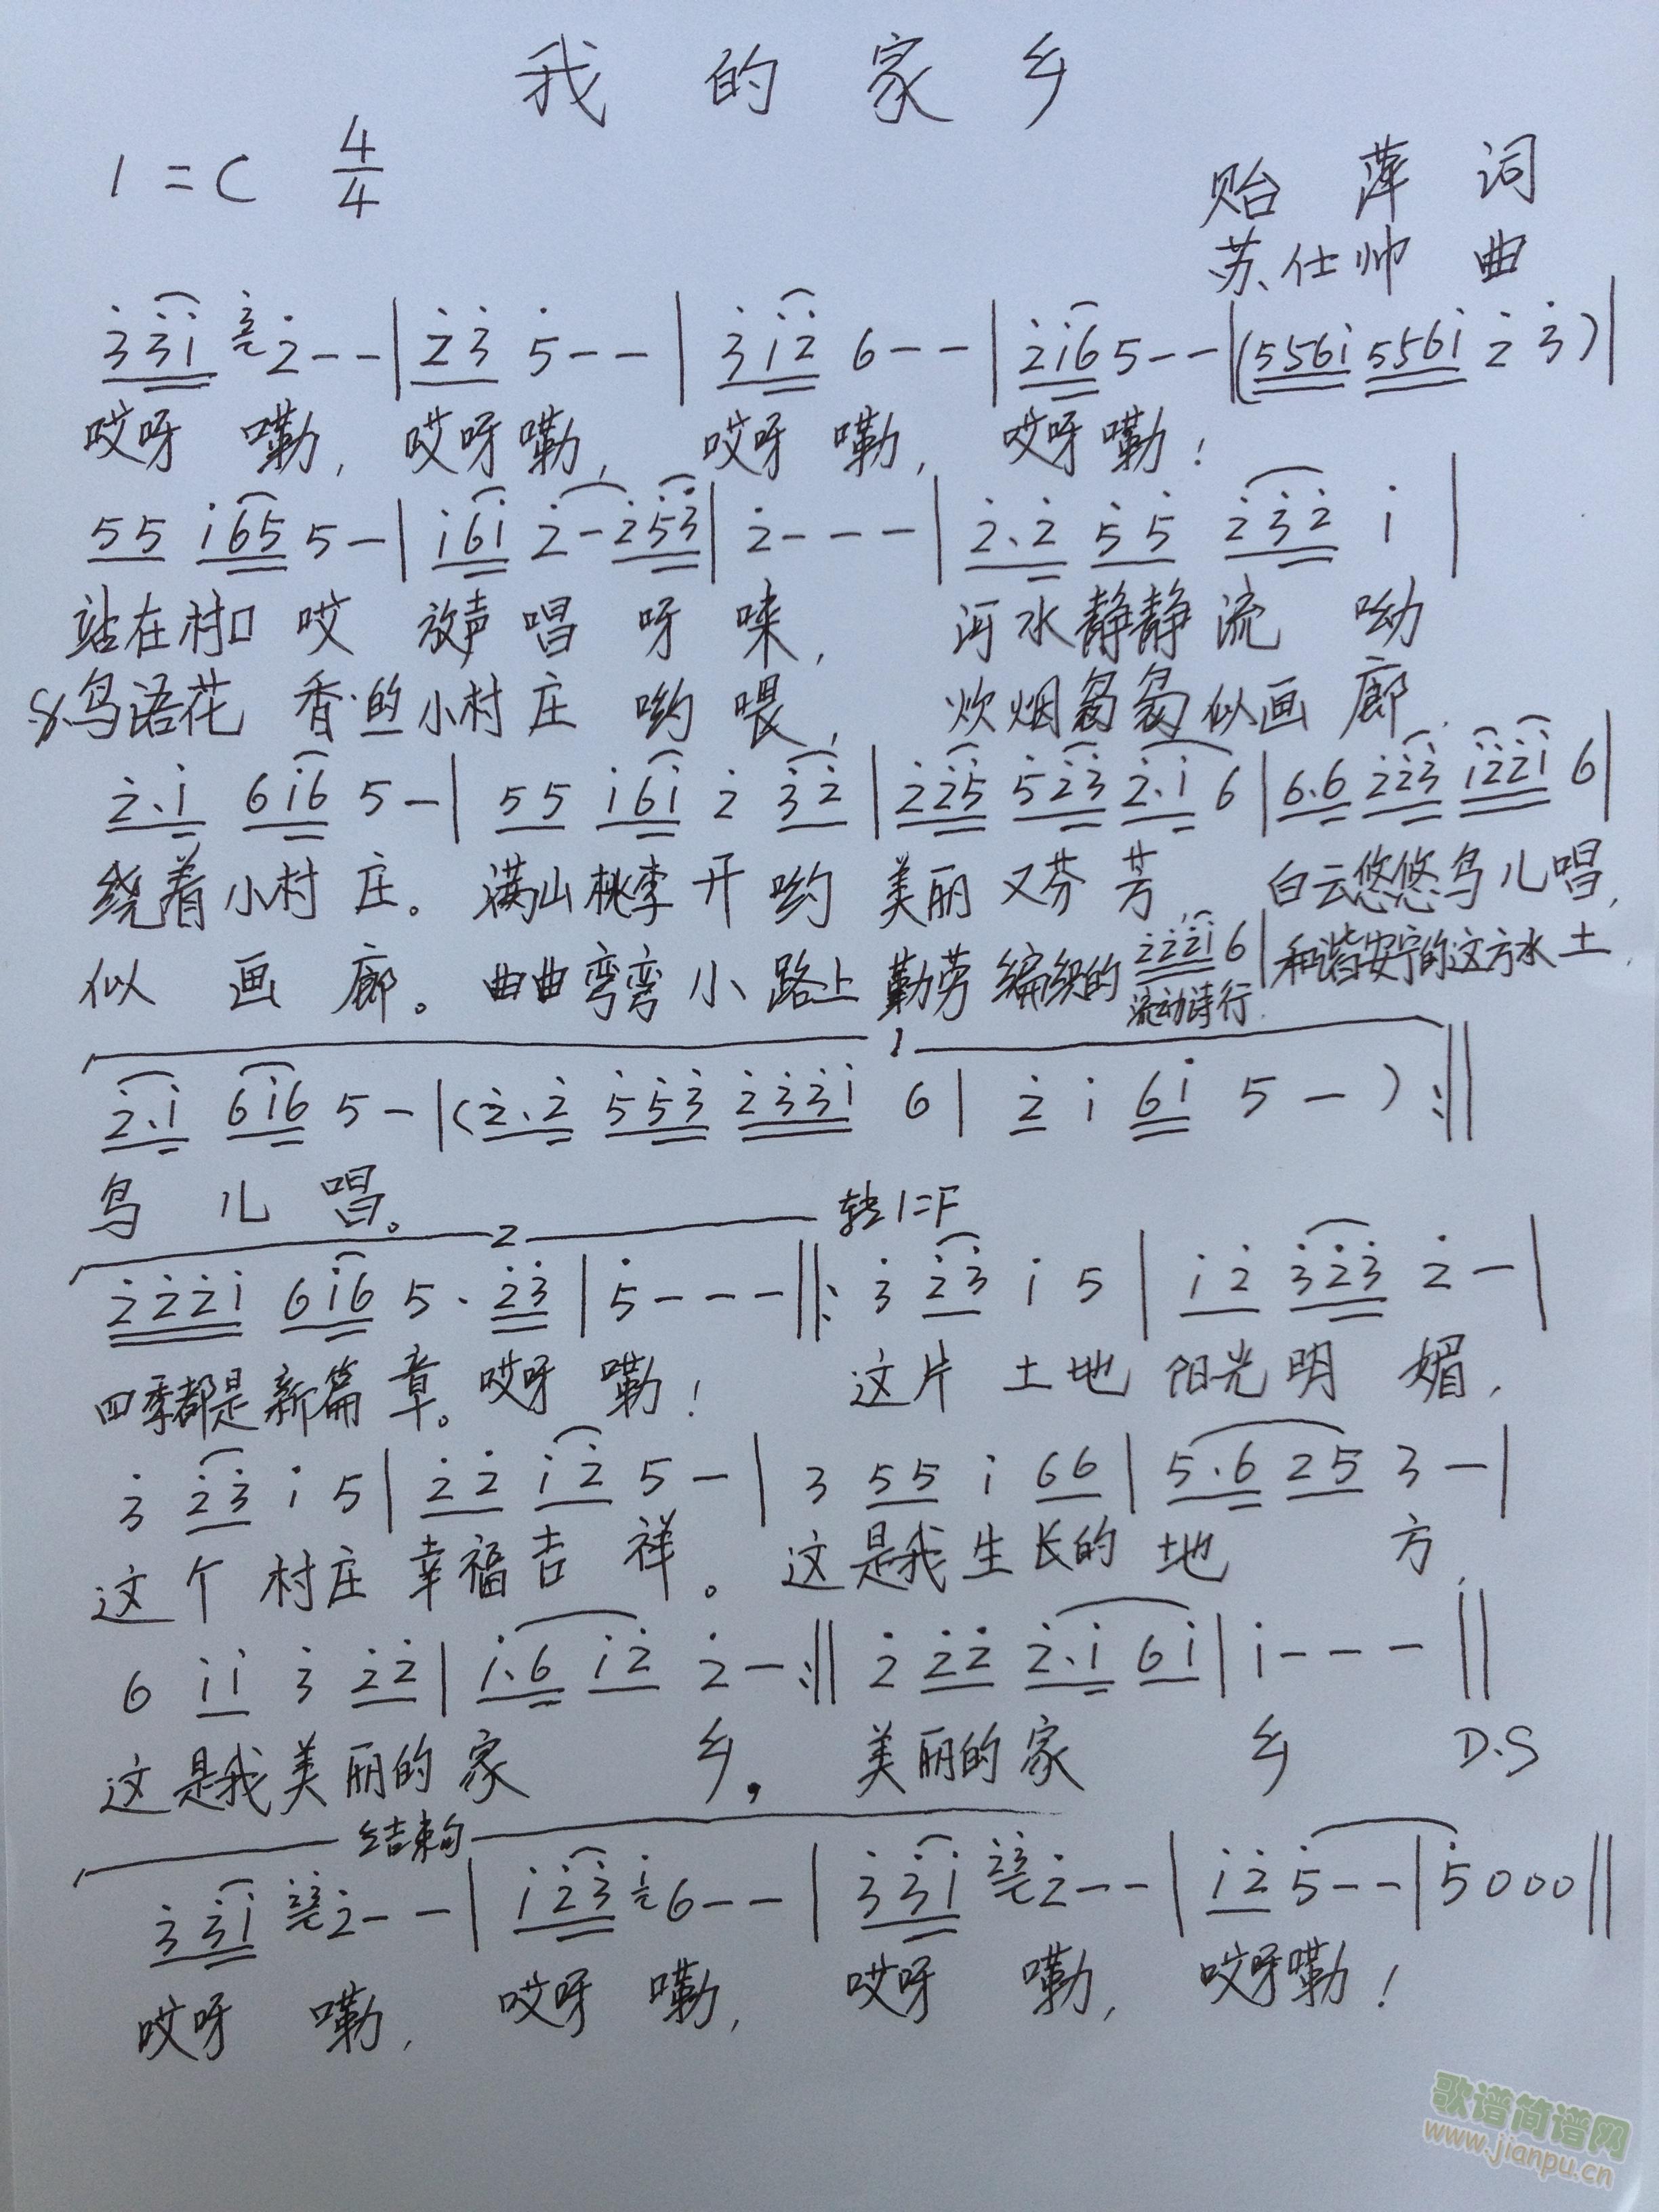 我的家乡
1=C 4/4
贻萍词
苏仕帅曲
3 3 1 3 2 - - | 2 3 5 - - | 3 1 2 6 - - | 2 1 6 5 - - | (5 5 6 1 5 5 6 1 2 3) |
哎呀 嘞, 哎呀嘞, 哎呀 嘞, 哎呀嘞!
5 5 1 6 5 5 - | 1 6 1 2 - 2 5 3 | 2 - - - | 2. 2 5 5 2 3 2 1 |
站在村口 哎 放声唱 呀 唻, 河水静静流 呦
鸟语花 香的小村庄 哟 喂, 炊烟袅袅似画廊,
2. 1 6 1 6 5 - | 5 5 1 6 1 2 3 2 | 2 2 5 5 2 3 2. 1 6 | 6. 6 2 2 3 1 2 2 1 6 |
绕着小村庄。 满山桃李开哟 美丽又芬芳, 白云悠悠鸟儿唱,
2 2 2 1 6 |
似画廊。 曲曲弯弯小路上 勤劳编织的 流动诗行, 和谐安宁的这方水土,
1
2. 1 6 1 6 5 - | (2. 2 5 5 3 2 3 3 1 6 | 2 1 6 1 5 - ) :||
鸟儿唱。
2 转1=F
2 2 2 1 6 1 6 5 . 2 3 | 5 - - - ||: 3 2 3 1 5 | 1 2 3 2 3 2 - |
四季都是新篇章。哎呀 嘞! 这片土地 阳光明媚,
3 2 3 1 5 | 2 2 1 2 5 - | 3 5 5 1 6 6 | 5. 6 2 5 3 - |
这个村庄 幸福吉祥。 这是我生长的地方,
6 1 1 3 2 2 | 1. 6 1 2 2 - :|| 2 2 2 2. 1 6 1 | 1 - - - ||
这是我美丽的家乡, 美丽的家乡 D.S
结束句
3 3 1 2 3 2 - - | 1 2 3 1 6 - - | 3 3 1 2 3 2 - - | 1 2 5 - - | 5 0 0 0 ||
哎呀 嘞, 哎呀 嘞, 哎呀 嘞, 哎呀嘞!
歌谱简谱网
www.jianpu.cn